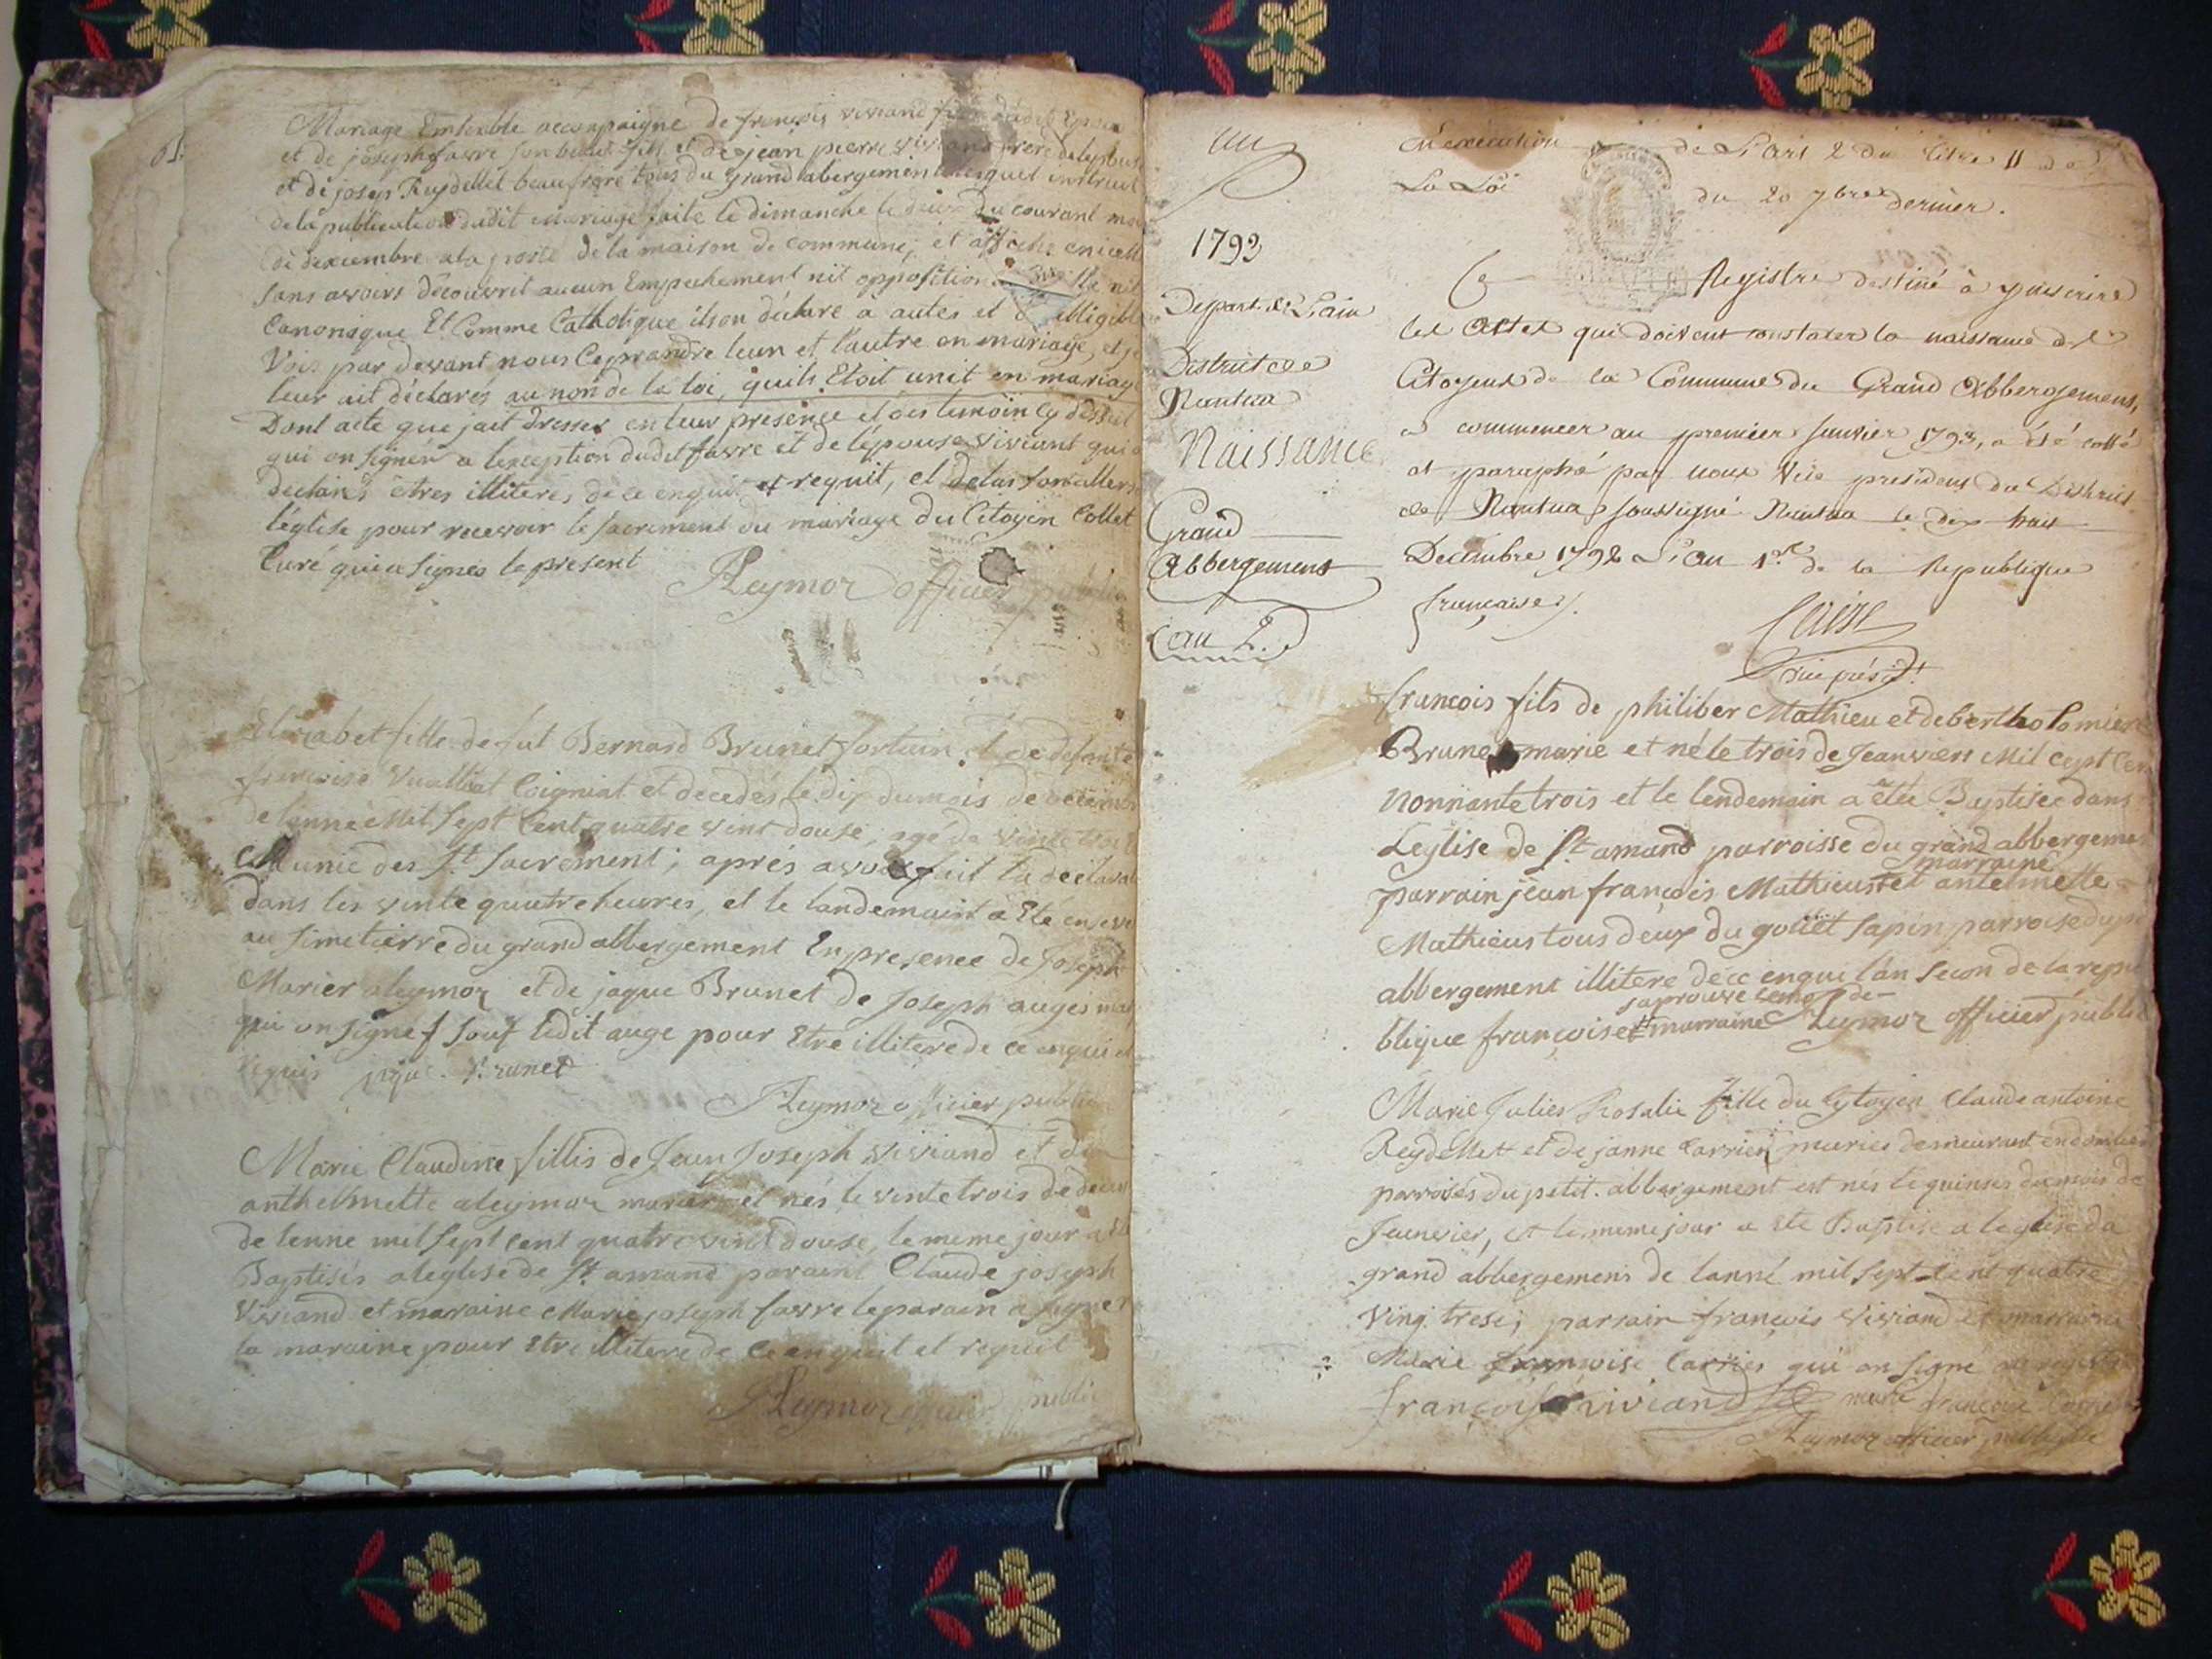 Mariage Ensemble accompaigne de francois viviand
et de joseph favre son beau fils et de jean pierre viviand frere de lepouse
et de joseph Reydellet beaufrere tous du grand abergement
de la publication dudit mariage faite le dimanche le deux du courant
de dexcembre a la porte de la maison de commune, et affiche
sans avoirs découvrit aucun Empechement nit opposition
Canonique Et Comme Catholique ils on déclare a autes et
Vois par devant nous leprandre leun et l'autre en mariage, et je
leur ait déclarés au non de la loi, quils Etoit unit en mariage
Dont acte que jait dresser en leur presence et des temoin cy dessut
qui on signér a lexception dudit favre et de lépouse viviant qui
déclarés êtres illiteres, de ce enquit et requit, et delas son allers
léglise pour recevoir le sacrement du mariage du Citoyen Collet
Curé qui a signés le present
Aleymoz officier public
Elizabet fille de fut Bernard Brunet fortuin et de defunte
francoise Vuaillat Coigniat et decedés le dix du mois de decembre
de lanneé Mil Sept Cent quatre vint douse, agé de vinte
Munie des St. Sacrement; aprés avoir fait la declaration
dans les vinte quatre heures, et le landemain a Eté
au simetierre du grand abbergement En presence de Joseph
Marier aleymoz et de jaque Brunet de Joseph auges
qui on signet souf ledit auge pour Etre illitere de ce enqui et
requis Brunet
Aleymoz officier public
Marie Claudine fillis de Jean Joseph viviand et
anthelmette aleymoz mariér et nés le vinte trois de
de lenne mil sept cent quatre vint douse, le meme jour a
Baptisés a leglise de St. amand paraint Claude joseph
viviand et maraine Marie joseph favre le parain a signer
la maraine pour Etre illitere de ce enqueit et requit
Aleymoz officier public
un
1793
Depart. de L'ain
District de
Nantua
Naissance
Grand
Abbergement
an 2.
En execution de L'art 2 du titre 11 de
La Loi du 20 7bre dernier.
Ce Registre destiné à y inscrire
les Actes qui doivent constater la naissance des
Citoyens de la Commune du Grand Abbergement,
a commencer au premier Janvier 1793, a été cotté
et paraphé par nous Vice president du District
de Nantua soussigné Nantua le dix huit
Decembre 1792 L'an 1er de la Republique
française.
vice présidt
francois fils de philiber Mathieu et de bertholomiere
Brunet marie et né le trois de Jeanviers Mil Cept Cen
nonnante trois et le lendemain a été Baptisée dans
Leglise de St. amand parroisse du grand abbergemen
parrain jean francois Mathieus et marraine antelmette
Mathieus tous deux du goliet sapin parroise du
abbergement illitere de ce enqui lan secon de la repu
blique françoise japrouve le mot de marraine Aleymoz officier public
Marie Julies Rosalie fille du Cytoyen Claude antoine
Reydellet et de janne Carrier maries demeurant
parroises du petit abbergement est nés le quinses du mois de
Jeanvier, et le meme jour a ete Baptise a leglise du
grand abbergement de lanné mil sept cent quatre
Ving trese; parrain francois viviand et marraine
Marie francoise Carrier qui on signé
françois viviand marie francoise
Aleymoz officier publique